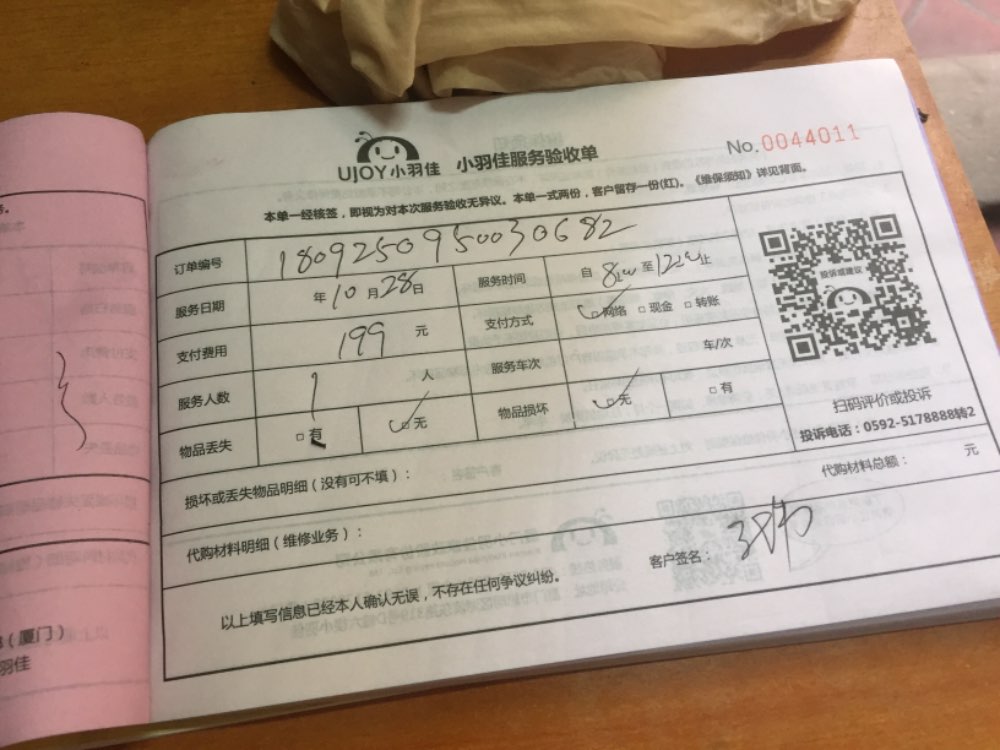 UJOY小羽佳 小羽佳服务验收单
No.0044011
本单一经核签，即视为对本次服务验收无异议。本单一式两份，客户留存一份(红)。《维保须知》详见背面。
订单编号 180925095003068​2
服务日期 年10月28日 服务时间 自800至1200止
支付费用 199 元 支付方式 网络 现金 转账
服务人数 1 人 服务车次 车/次
物品丢失 有 无 物品损坏 无 有
投诉或建议
扫码评价或投诉
投诉电话：0592-5178888转2
损坏或丢失物品明细（没有可不填）：
代购材料明细（维修业务）： 代购材料总额： 元
以上填写信息已经本人确认无误，不存在任何争议纠纷。 客户签名：
（厦门）
羽佳